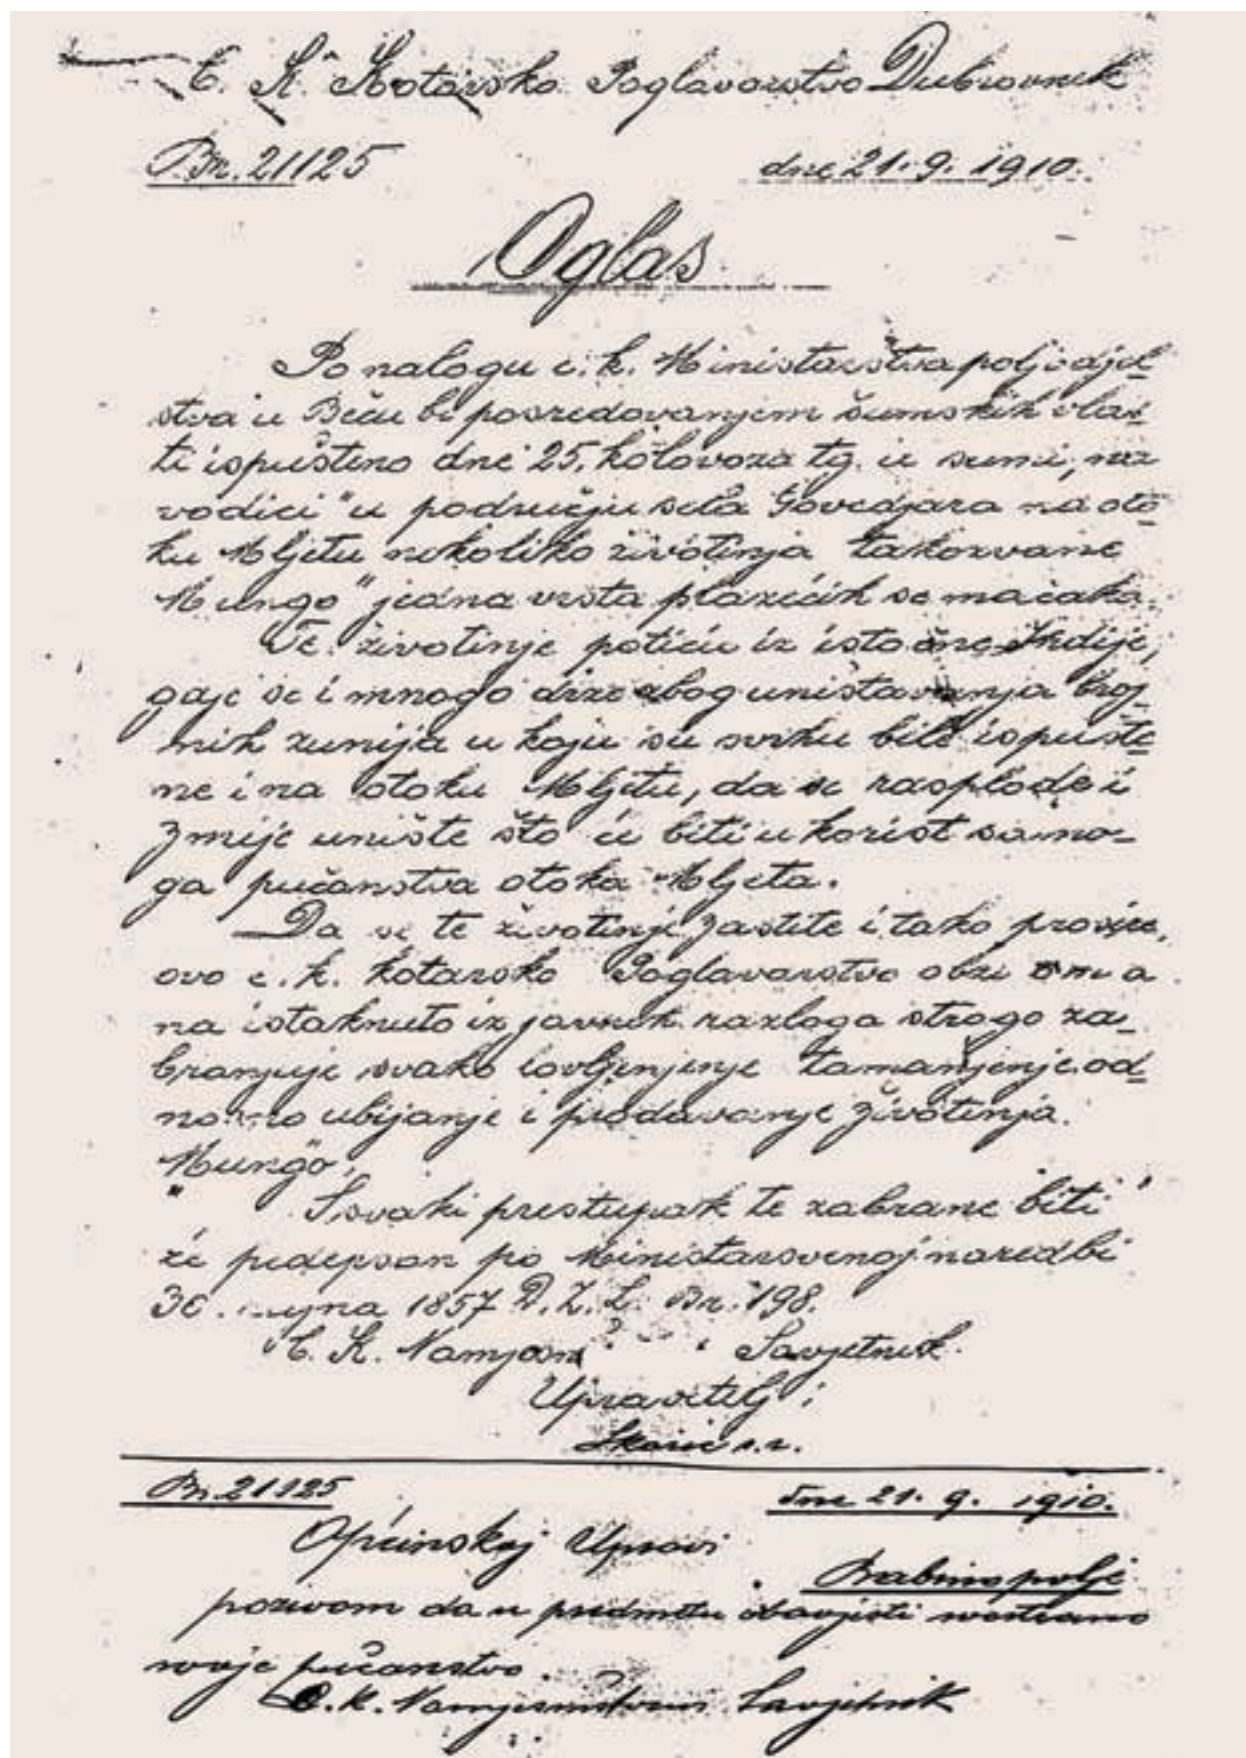 C. K. Kotarsko Poglavarstvo Dubrovnik
Br. 21125 dne 21. 9. 1910.
Oglas
Po nalogu c. k. Ministarstva poljodjel-
stva u Beču bi posredovanjem šumskih vlas-
ti ispušteno dne 25. kolovoza tg. u šumi „na
vodici" u području sela Govedjara na oto-
ku Mljetu nekoliko životinja takozvane
Mungo" jedna vrsta plazećih se mačaka.
Te životinje potiču iz istočne Indije,
gaje se i mnogo drže zbog uništavanja broj-
nih zmija u koju su svrhu bile ispušte-
ne i na otoku Mljetu, da se rasplode i
zmije unište što će biti u korist samo-
ga pučanstva otoka Mljeta.
Da se te životinje zaštite i tako
ovo c. k. kotarsko Poglavarstvo obzirom a
na istaknuto iz javnih razloga strogo za-
branjuje svako lovljenjenje tamanjenje od-
nosno ubijanje i prodavanje životinja
„Mungo".
Svaki prestupak te zabrane biti
će pedepsan po Ministarsvenoj naredbi
30. 1857 D. Z. L. Br. 198.
C. K. Savjetnik.
Upravitelj:
s. r.
Br. 21125 dne 21. 9. 1910.
Općinskoj Upravi
Babinopolje
pozivom da u predmetu obavjesti
svoje pučanstvo.
C. K. Savjetnik